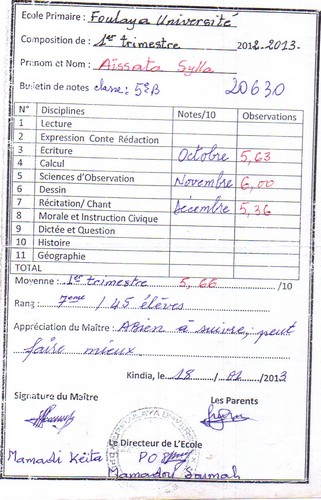 Ecole Primaire : Foulaya Université
Composition de : 1er trimestre 2012-2013.
Prénom et Nom : Aïssata Sylla
Bulletin de notes classe: 5è B 20630
N° Disciplines Notes/10 Observations
1 Lecture
2 Expression Conte Rédaction
3 Ecriture Octobre 5,63
4 Calcul
5 Sciences d'Observation Novembre 6,00
6 Dessin
7 Récitation/ Chant Décembre 5,36
8 Morale et Instruction Civique
9 Dictée et Question
10 Histoire
11 Géographie
TOTAL
Moyenne : 1er trimestre 5,66 /10
Rang : 7eme / 45 élèves
Appréciation du Maître : A Bien à suivre, peut
faire mieux
Kindia, le 18 / 01 /2013
Signature du Maître Les Parents
Le Directeur de L'Ecole
Mamadi Keita P O
Mamadou Soumah